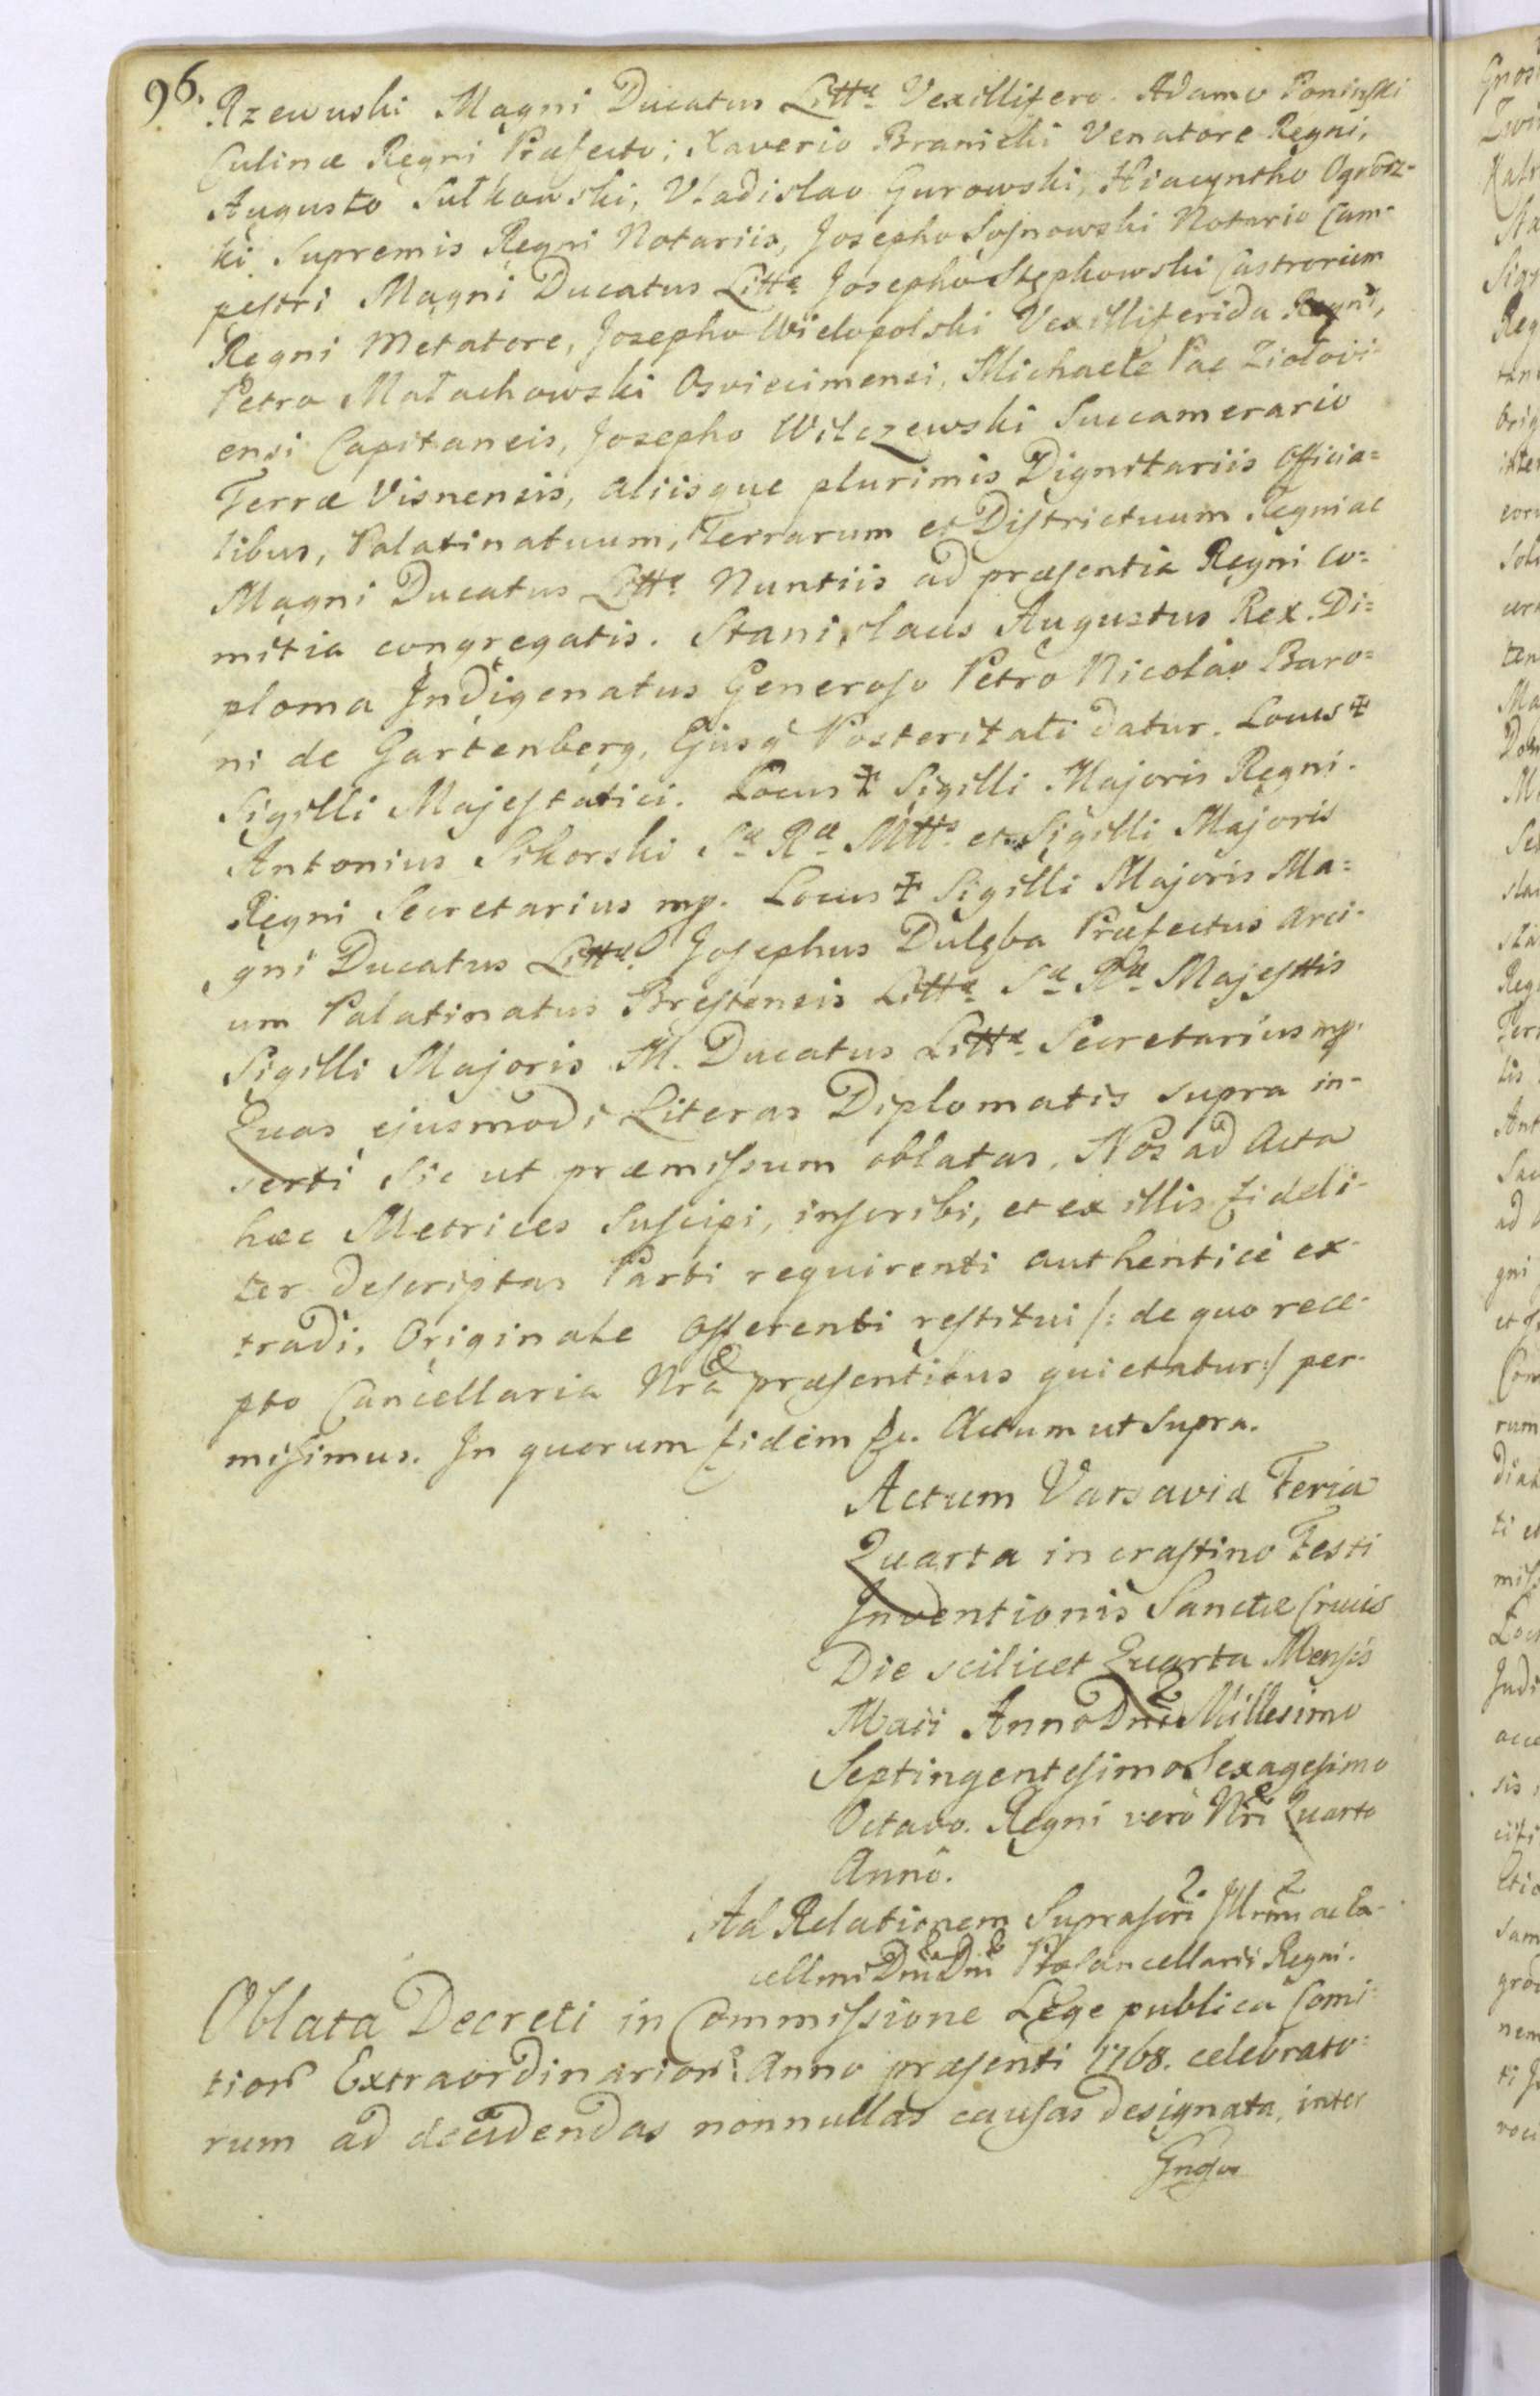 96.
Rzewuski Magni Ducatus Littæ Vexillifero. Adamo Poniński
Culinæ Regni Præfecto; Xaverio Branicki Venatore Regni,
Augusto Sułkowski, Vladislao Gurowski, Hiacyntho Ogrodz-
ki Supremis Regni Notariis, Josepho Sosnowski Notario Cam-
pestri Magni Ducatus Littæ Josepho Stępkowski Castrorum
Regni Metatore, Josepho Wielopolski Vexilliferida Regni,
Petro Małachowski Osviecimensi, Michaele Pac Ziołovi-
ensi Capitaneis, Josepho Wilczewski Succamerario
Terræ Visnensis, aliisque plurimis Dignitariis Officia=
libus, Palatinatuum, Terrarum et Districtuum Regni ac
Magni Ducatus Littæ Nuntiis ad præsentia Regni Co=
mitia congregatis. Stanislaus Augustus Rex. Di=
ploma Indigenatus Generoso Petro Nicolao Baro=
ni de Gartenberg, Ejusq Posteritati datur. Locus ✝
Sigilli Majestatici. Locus ✝ Sigilli Majoris Regni.
Antonius Sikorski Sæ Ræ Mttis et Sigilli Majoris
Regni Secretarius mp. Locus ✝ Sigilli Majoris Ma=
gni Ducatus Littæ Josephus Dulęba Præfectus Arci-
um Palatinatus Brestensis Littæ Sæ Ræ Majesttis
Sigilli Majoris M. Ducatus Littæ Secretarius mp.
Quas ejusmodi Literas Diplomatis supra in-
serti sic ut præmissum oblatas, Nos ad Acta
hæc Metrices suscipi, inscribi, et ex illis fideli-
ter descriptas Parti requirenti authentice ex-
tradi, Originale Offerenti restitui /: de quo rece-
pto Cancellaria Nra præsentibus quietatur :/ per-
misimus. In quorum fidem &c. Actum ut supra.
Actum Varsaviæ Feria
Quarta in crastino Festi
Inventionis Sanctæ Crucis
Die scilicet Quarta Mensis
Maii Anno Dni Millesimo
Septingentesimo Sexagesimo
Octavo. Regni vero Nri Quarto
Anno.
Ad Relationem Suprascri Illrmi ac Ex-
cellmi Dni Dni ProCancellarii Regni.
Oblata Decreti in Commissione Lege publica Comi-
tior Extraordinarior Anno præsenti 1768. celebrato-
rum ad decidendas nonnullas causas designata, inter